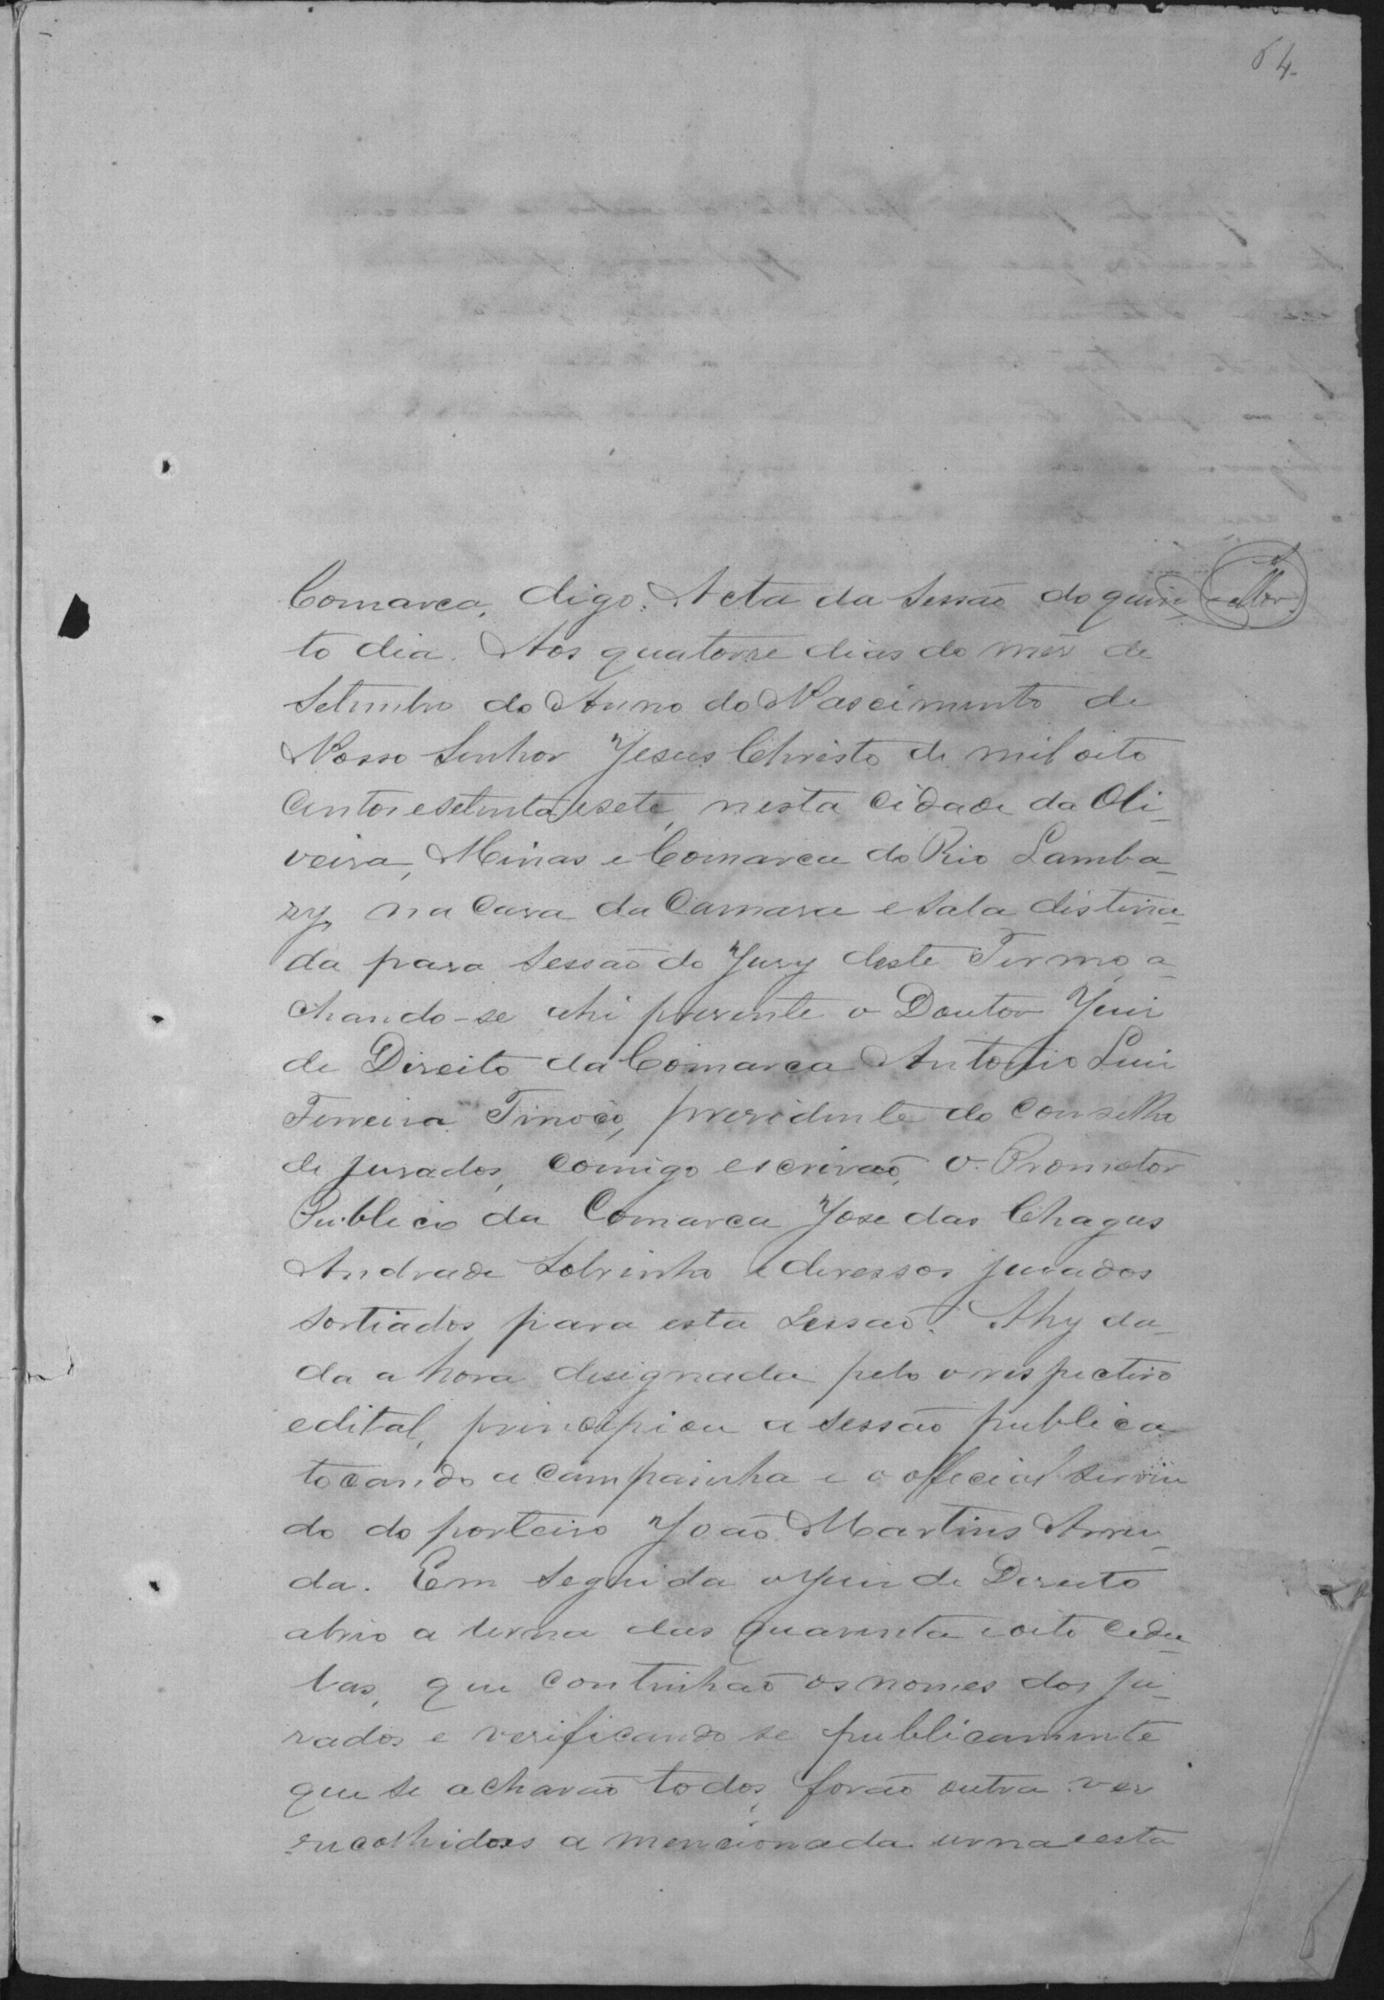 64.
Comarca, digo, Acta da Sessão do quin
to dia. Aos quatorze dias do mez de
Setembro do Anno do Nascimento de
Nosso Senhor Jesus Christo de mil oito
centos e setenta e sete, nesta cidade da Oli-
veira, Minas e Comarca do Rio Lamba-
ry, na Casa da Camara e sala distina-
da para sessão do Jury deste Termo, a-
chando-se ahi presente o Doutor Juiz
de Direito da Comarca Antonio Luiz
Ferreira Tinoco, presidente do conselho
de jurados, comigo escrivão, o Promotor
Publico da Comarca José das Chagas
Andrade Sobrinho e diversos jurados
sortiados para esta sessão. Ahy da-
da a hora designada pelo o respectivo
edital, principiou a sessão publica
tocando a campainha e o official servin
do do porteiro João Martins Arru-
da. Em seguida o Juiz de Direito
abrio a urna das quarenta e oito cedu-
las, que continhão os nomes dos ju-
rados e verificando se publicamente
que se achavão todos, forão outra vez
recolhidos a mencionada urna e esta